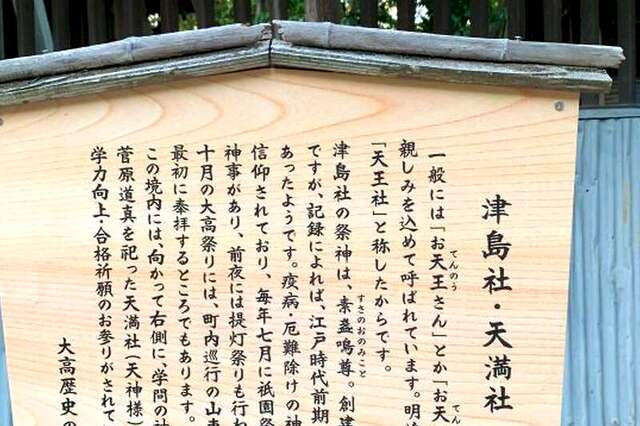 津島社・天満社
一般には「お天王さん」とか「お天
てんのう
てん
親しみを込めて呼ばれています。明治
「天王社」と称したからです。
津島社の祭神は、素盞嗚尊。創建
すさのおのみこと
ですが、記録によれば、江戸時代前期
あったようです。疫病・厄難除けの神
信仰されており、毎年七月に祇園祭
神事があり、前夜には提灯祭りも行わ
十月の大高祭りには、町内巡行の山車
最初に奉拝するところでもあります。
この境内には、向かって右側に、学問の神
菅原道真を祀った天満社(天神様)
学力向上・合格祈願のお参りがされて
大高歴史の